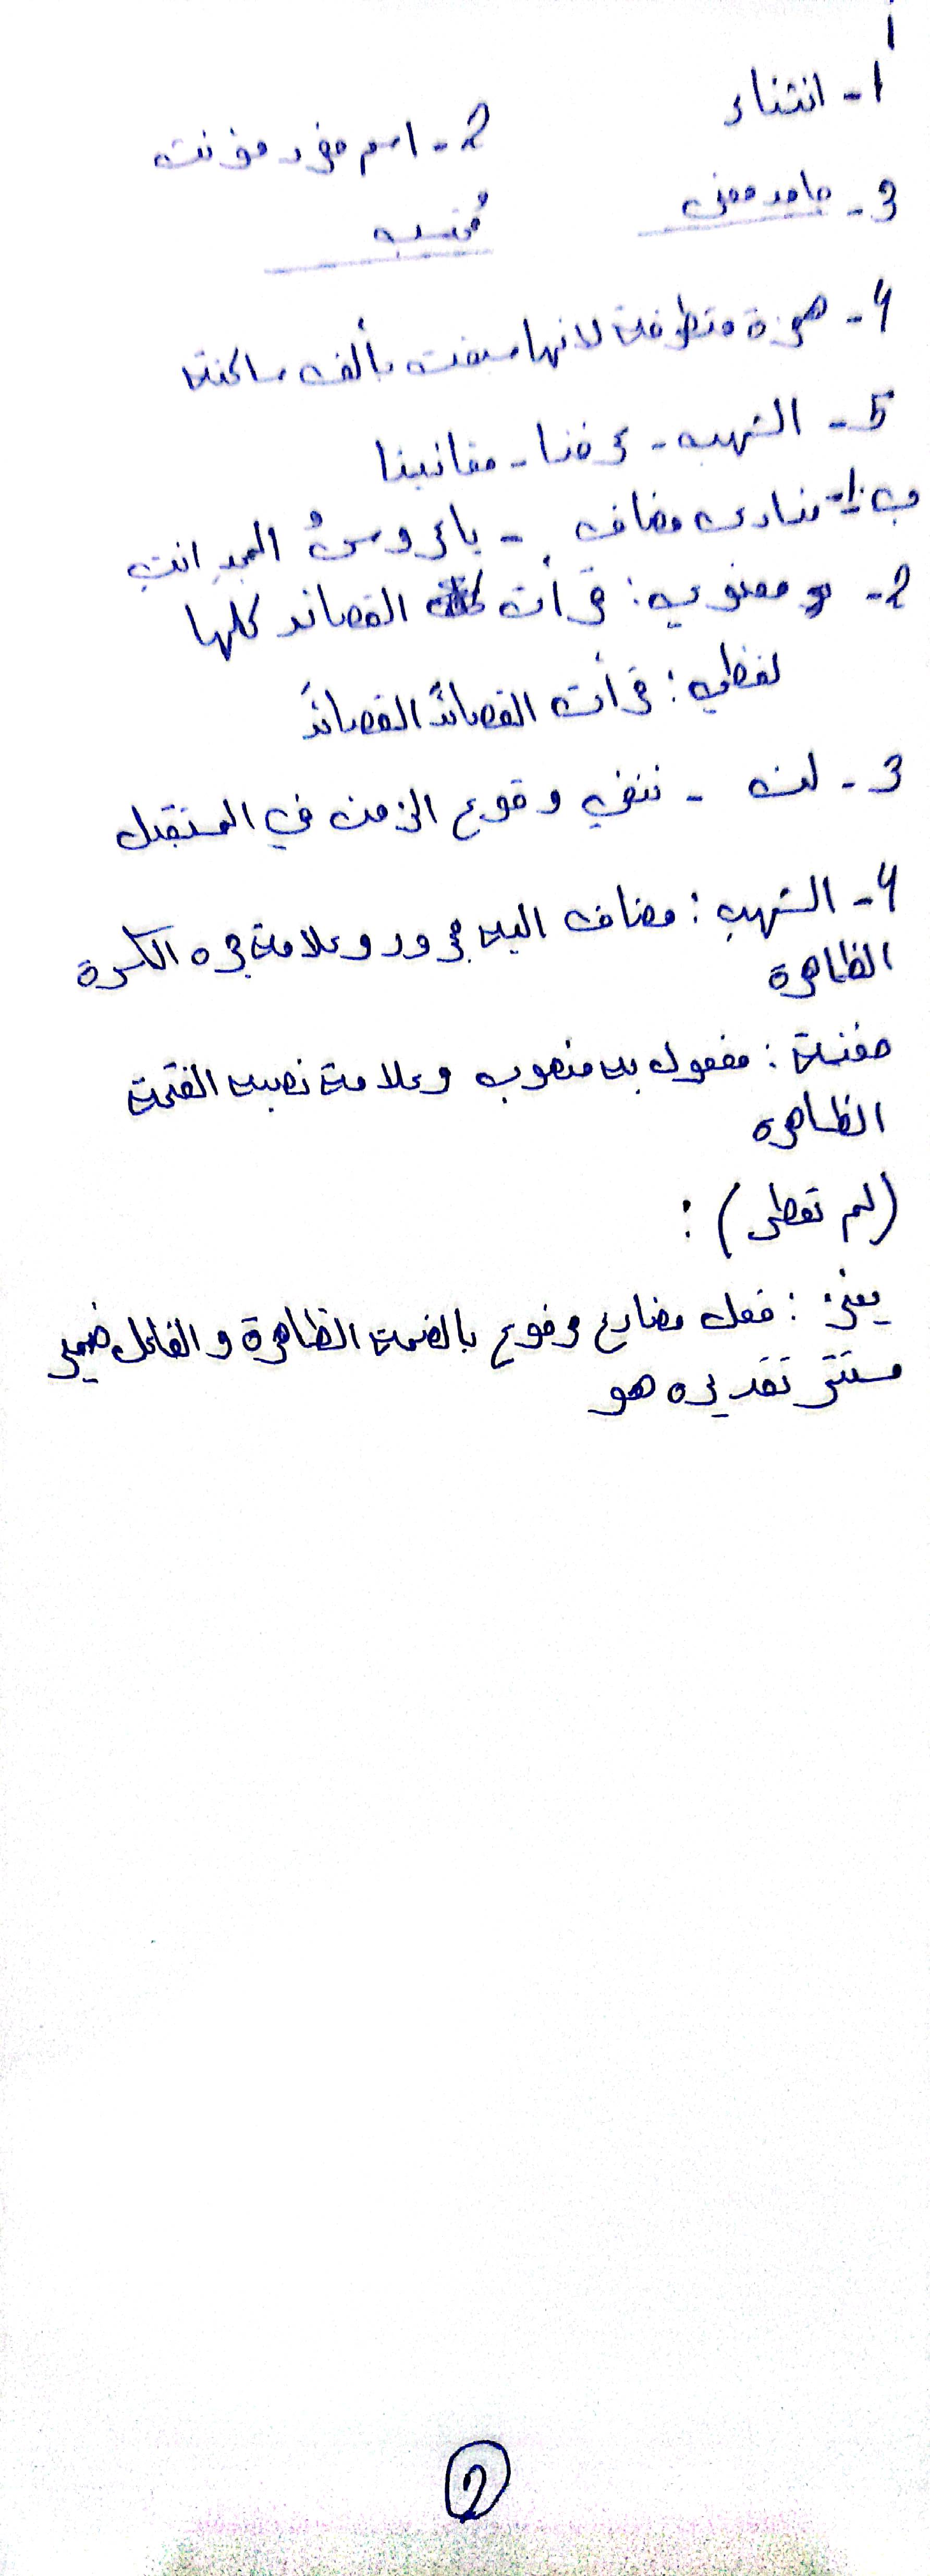 أ
1- انثناء
2- اسم مفرد مؤنث
3- جامد معنى
4- همزة متطرفة لانها سبقت بألف ساكنة
5- الشهب - عرفنا - مغانينا
ب: 1- منادى مضاف - يا عروسُ المجدِ انتِ
2- معنوي: قرأت القصائد كلها
لفظي: قرأت القصائدَ القصائدَ
3- لن - ننفي وقوع الزمن في المستقبل
4- الشهبِ: مضاف اليه مجرور وعلامة جره الكسرة
الظاهرة
مفعول به منصوب وعلامة نصبه الفتحة
الظاهره
(لم تعطى):
فعل مضارع مرفوع بالضمة الظاهرة والفاعل ضمير
مستتر تقديره هو
2